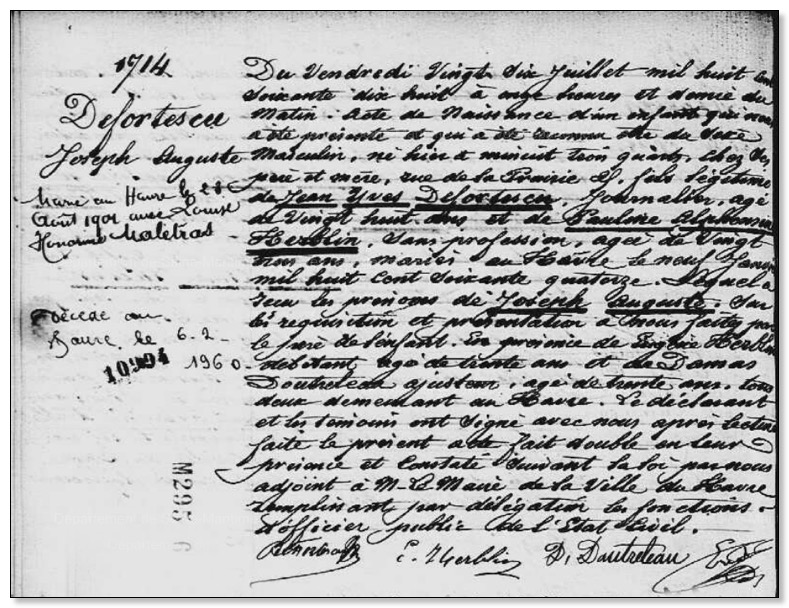 1714
Defortescu
Joseph Auguste
Marié au Havre le 28
Août 1901 avec Louise
Honorine Maletras
Décédé au
Havre le 6-2-
1960
M295 6
Du Vendredi Vingt Six Juillet mil huit cent
soixante dix huit à onze heures et demie du
Matin. Acte de Naissance d'un enfant qui nous
a été présenté et qui a été reconnu être du Sexe
Masculin, né hier à minuit trois quarts, chez ses
père et mère, rue de la Prairie fils légitime
de Jean Yves Defortescu, Journalier, âgé
de Vingt huit ans et de Pauline Alphonsine
Herblin, sans profession, agée de Vingt
trois ans, mariés au Havre le neuf Janvier
mil huit cent soixante quatorze. Lequel a
reçu les prénoms de Joseph Auguste. Sur
la réquisition et présentation à nous faites par
le père de l'enfant. En présence de Herblin
débitant, agé de trente ans et de Damas
Doutreleau ajusteur, agé de trente ans. tous
deux demeurant au Havre. Le déclarant
et les témoins ont signé avec nous après lecture
faite le présent acte fait double en leur
présence et Constaté suivant la loi par nous
adjoint à M. Le Maire de la Ville du Havre
remplissant par délégation les fonctions
d'officier public de l'Etat Civil.
E. Herblin D. Dautreleau